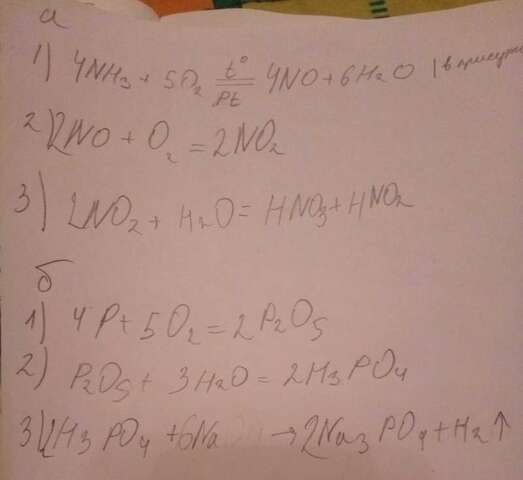 а
1) 4NH3 + 5O2 t° = Pt 4NO + 6H2O | в присут
2) 2NO + O2 = 2NO2
3) 2NO2 + H2O = HNO3 + HNO2
б
1) 4P + 5O2 = 2P2O5
2) P2O5 + 3H2O = 2H3PO4
3) 2H3PO4 + 6Na → 2Na3PO4 + H2↑